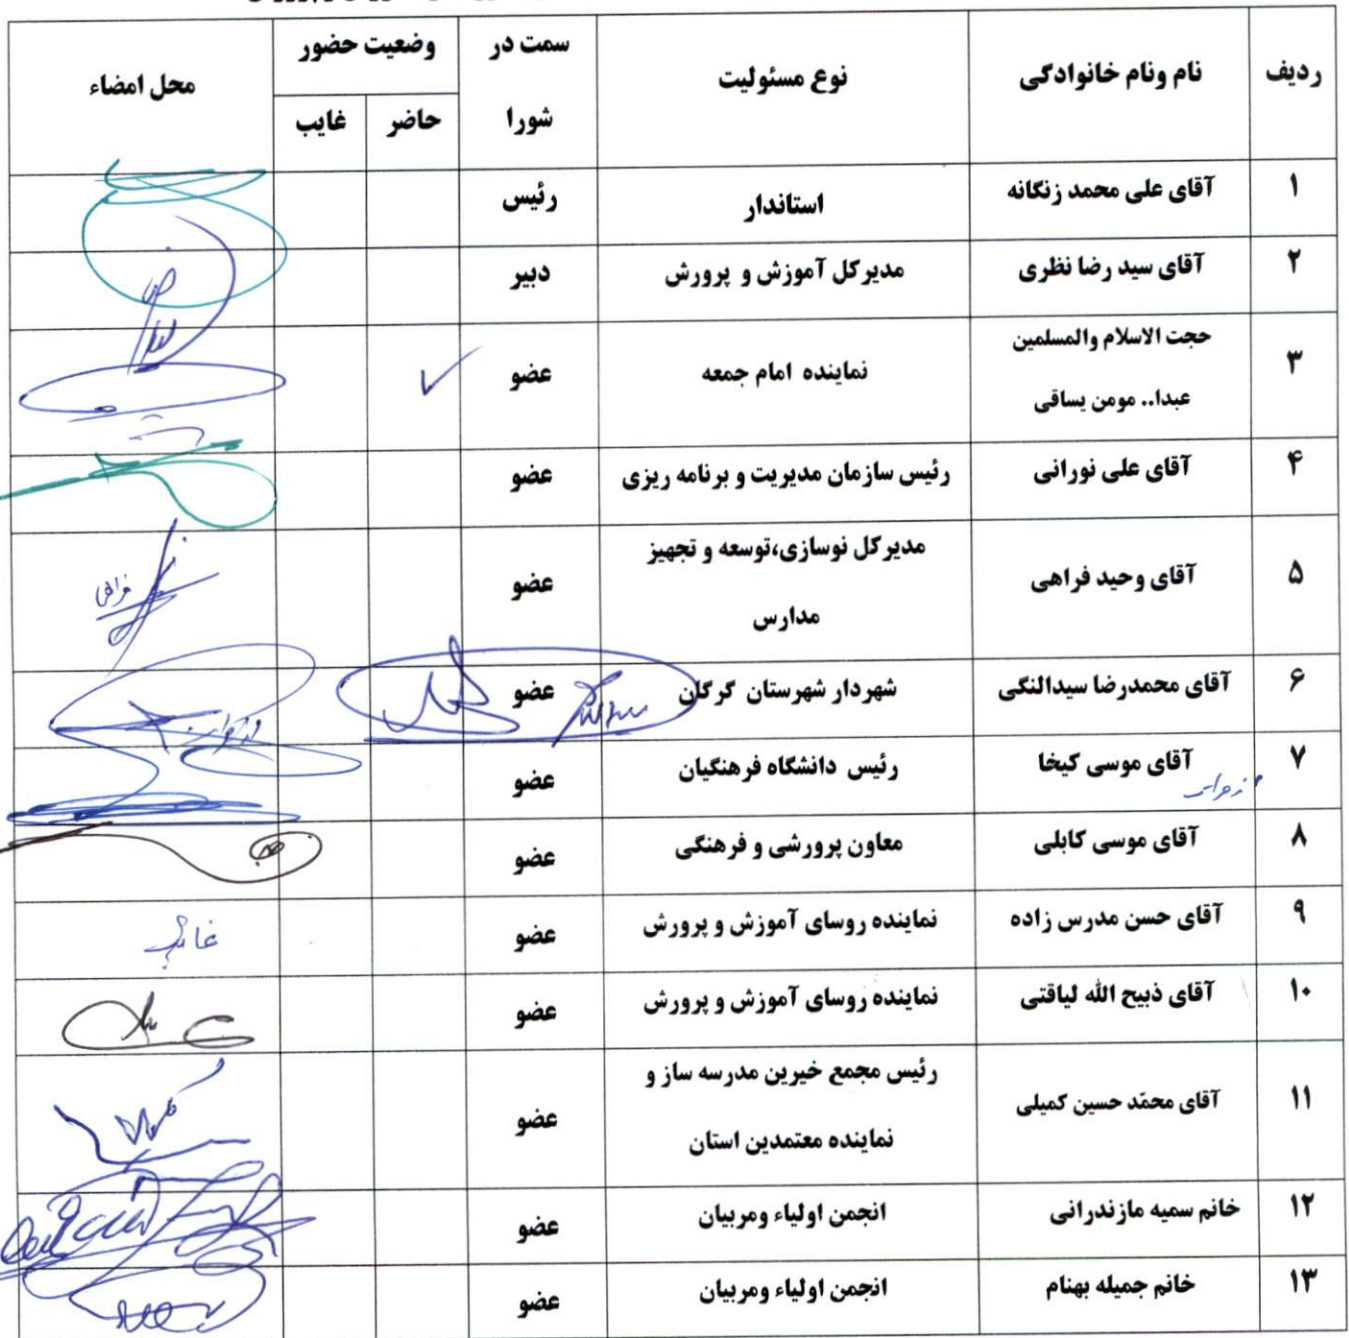 ردیف نام ونام خانوادگی نوع مسئولیت سمت در شورا وضعیت حضور محل امضاء
حاضر غایب
۱ آقای علی محمد زنگانه استاندار رئیس
۲ آقای سید رضا نظری مدیرکل آموزش و پرورش دبیر
۳ حجت الاسلام والمسلمین نماینده امام جمعه عضو ✓
عبدا.. مومن یساقی
۴ آقای علی نورانی رئیس سازمان مدیریت و برنامه ریزی عضو
۵ آقای وحید فراهی مدیرکل نوسازی،توسعه و تجهیز عضو فراهی
مدارس
۶ آقای محمدرضا سیدالنگی شهردار شهرستان گرگان عضو
۷ آقای موسی کیخا رئیس دانشگاه فرهنگیان عضو
۸ آقای موسی کابلی معاون پرورشی و فرهنگی عضو
۹ آقای حسن مدرس زاده نماینده روسای آموزش و پرورش عضو غایب
۱۰ آقای ذبیح الله لیاقتی نماینده روسای آموزش و پرورش عضو
۱۱ آقای محمّد حسین کمیلی رئیس مجمع خیرین مدرسه ساز و عضو
نماینده معتمدین استان
۱۲ خانم سمیه مازندرانی انجمن اولیاء ومربیان عضو
۱۳ خانم جمیله بهنام انجمن اولیاء ومربیان عضو